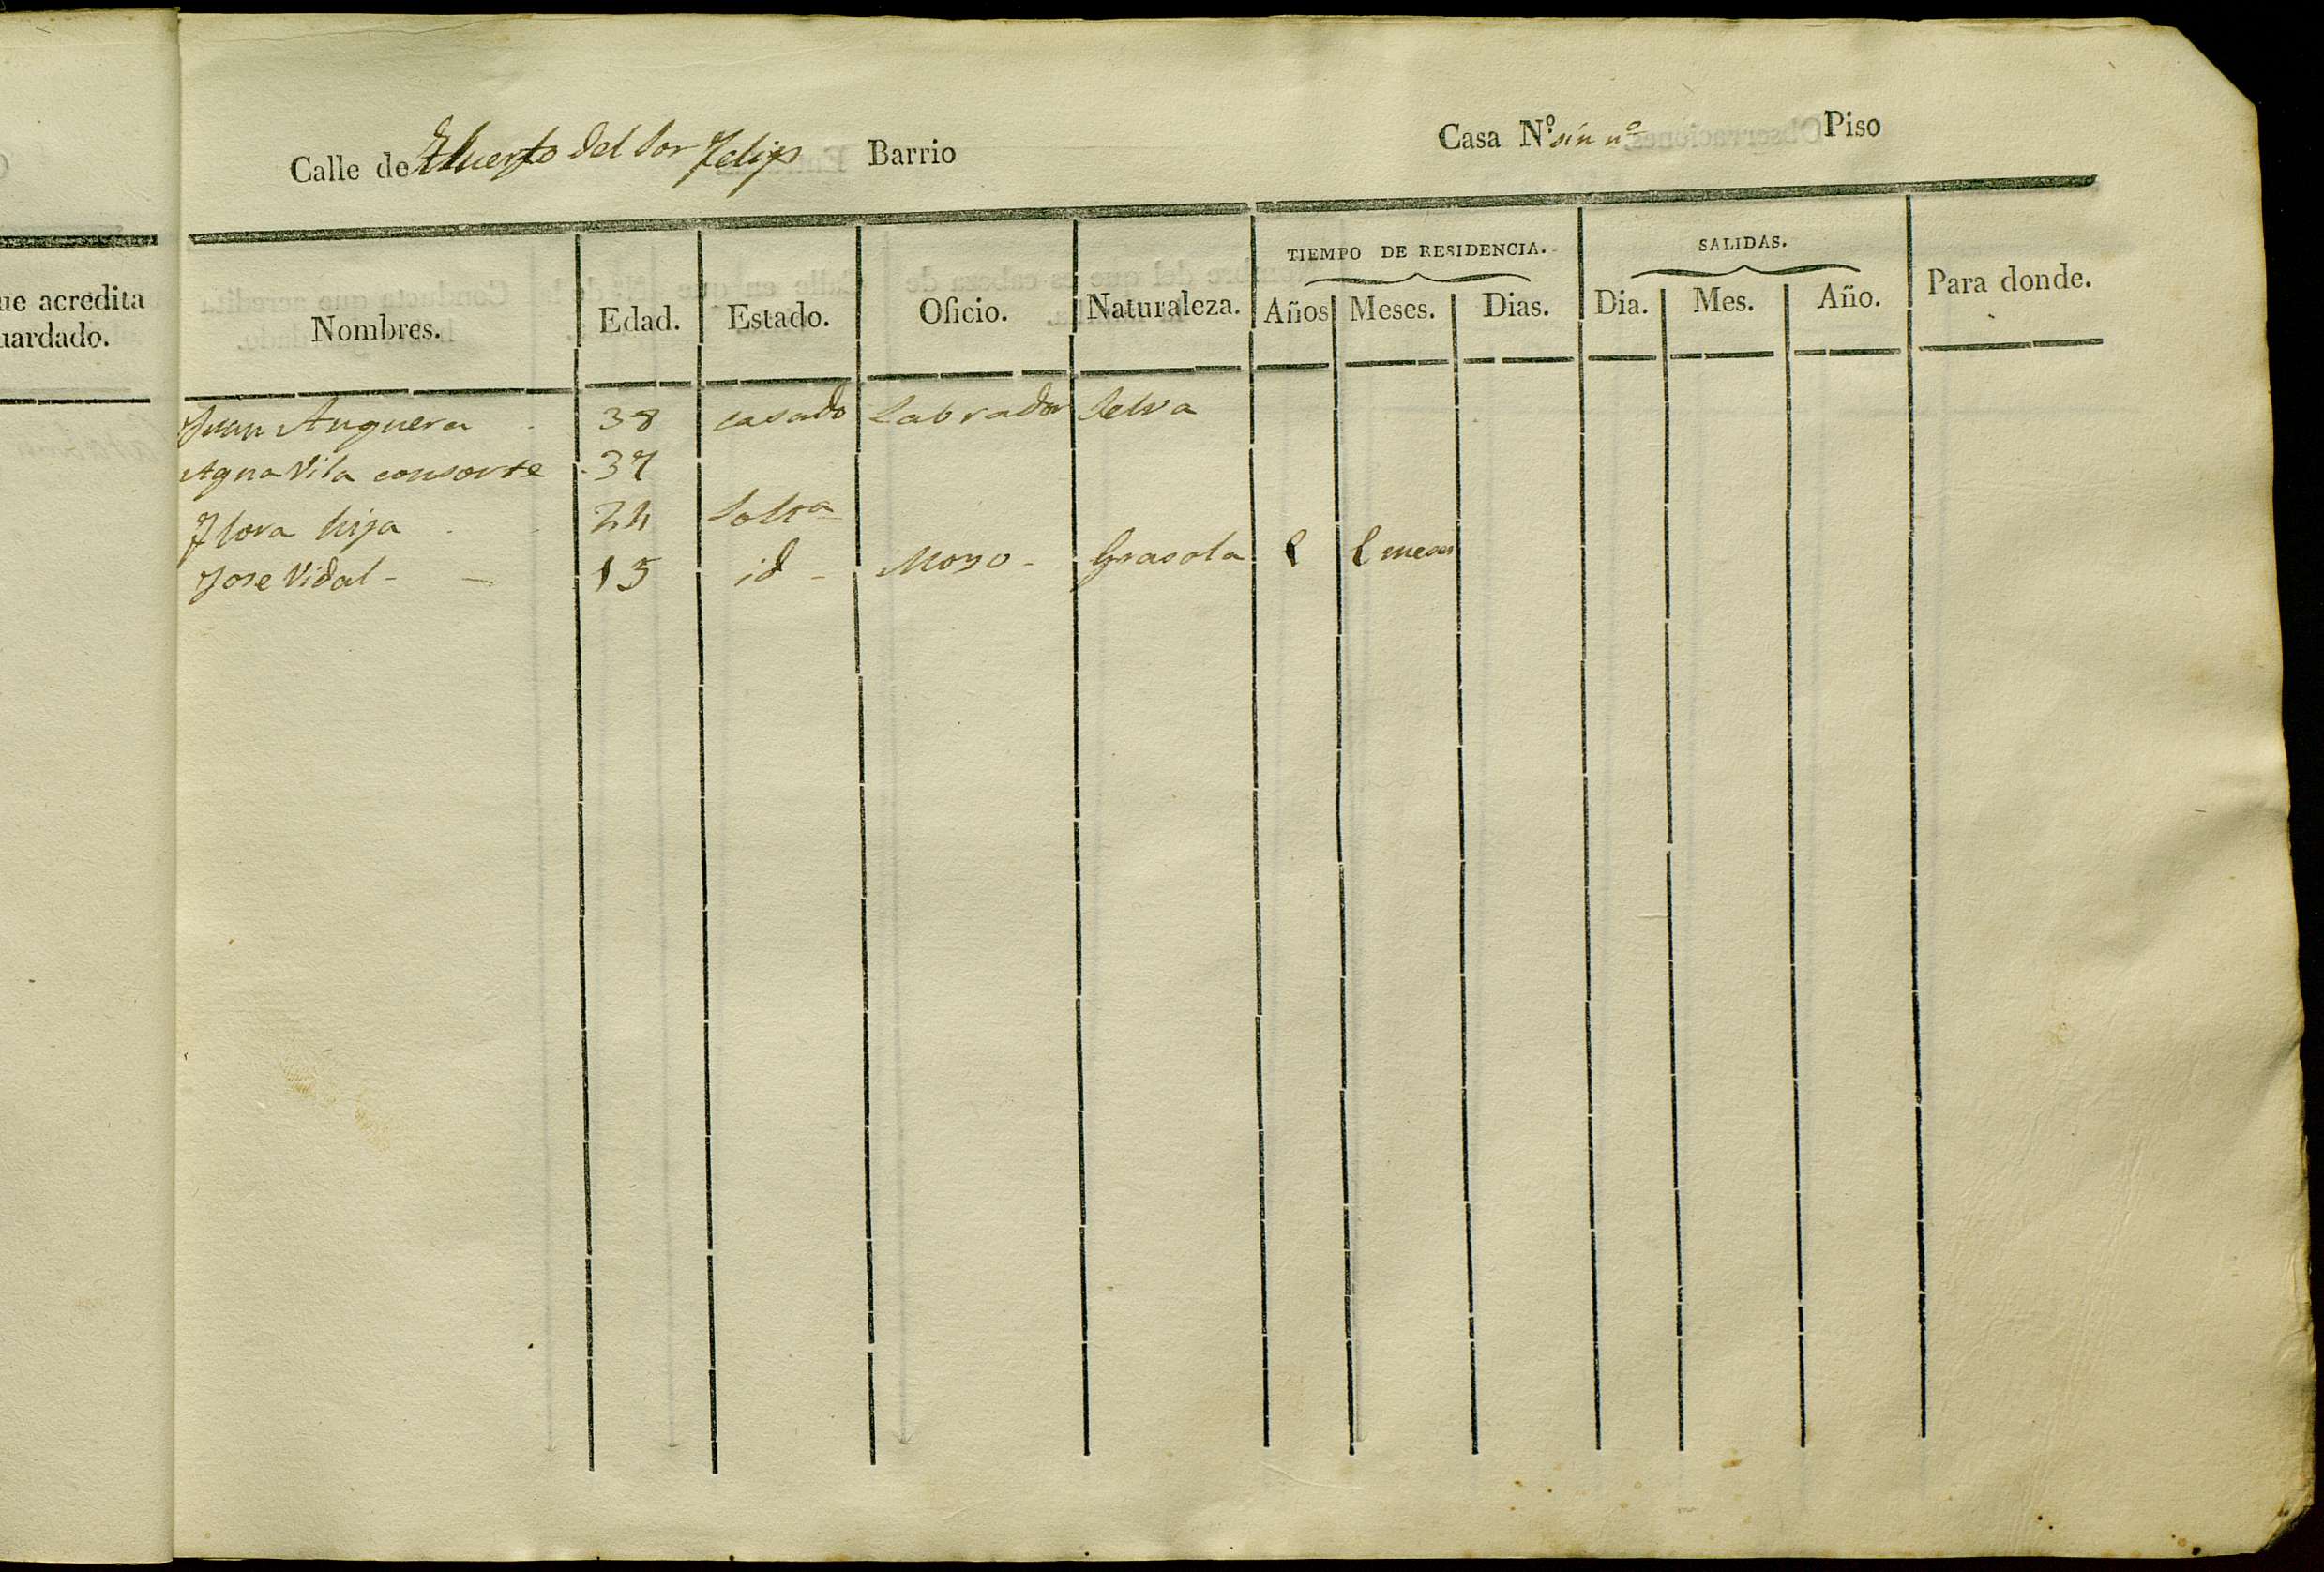 ue acredita
uardado.
Calle de Huerto del Sor Felip Barrio Casa Nº sin nº Piso
TIEMPO DE RESIDENCIA. SALIDAS.
Nombres. Edad. Estado. Oficio. Naturaleza. Años Meses. Dias. Dia. Mes. Año. Para donde.
Juan Anguera 38 casado Labrador Selva
Agna Vila consorte 37
Flora hija 24 Soltª
Jose Vidal - - 15 id - Mozo - Grasola 2 2 meses